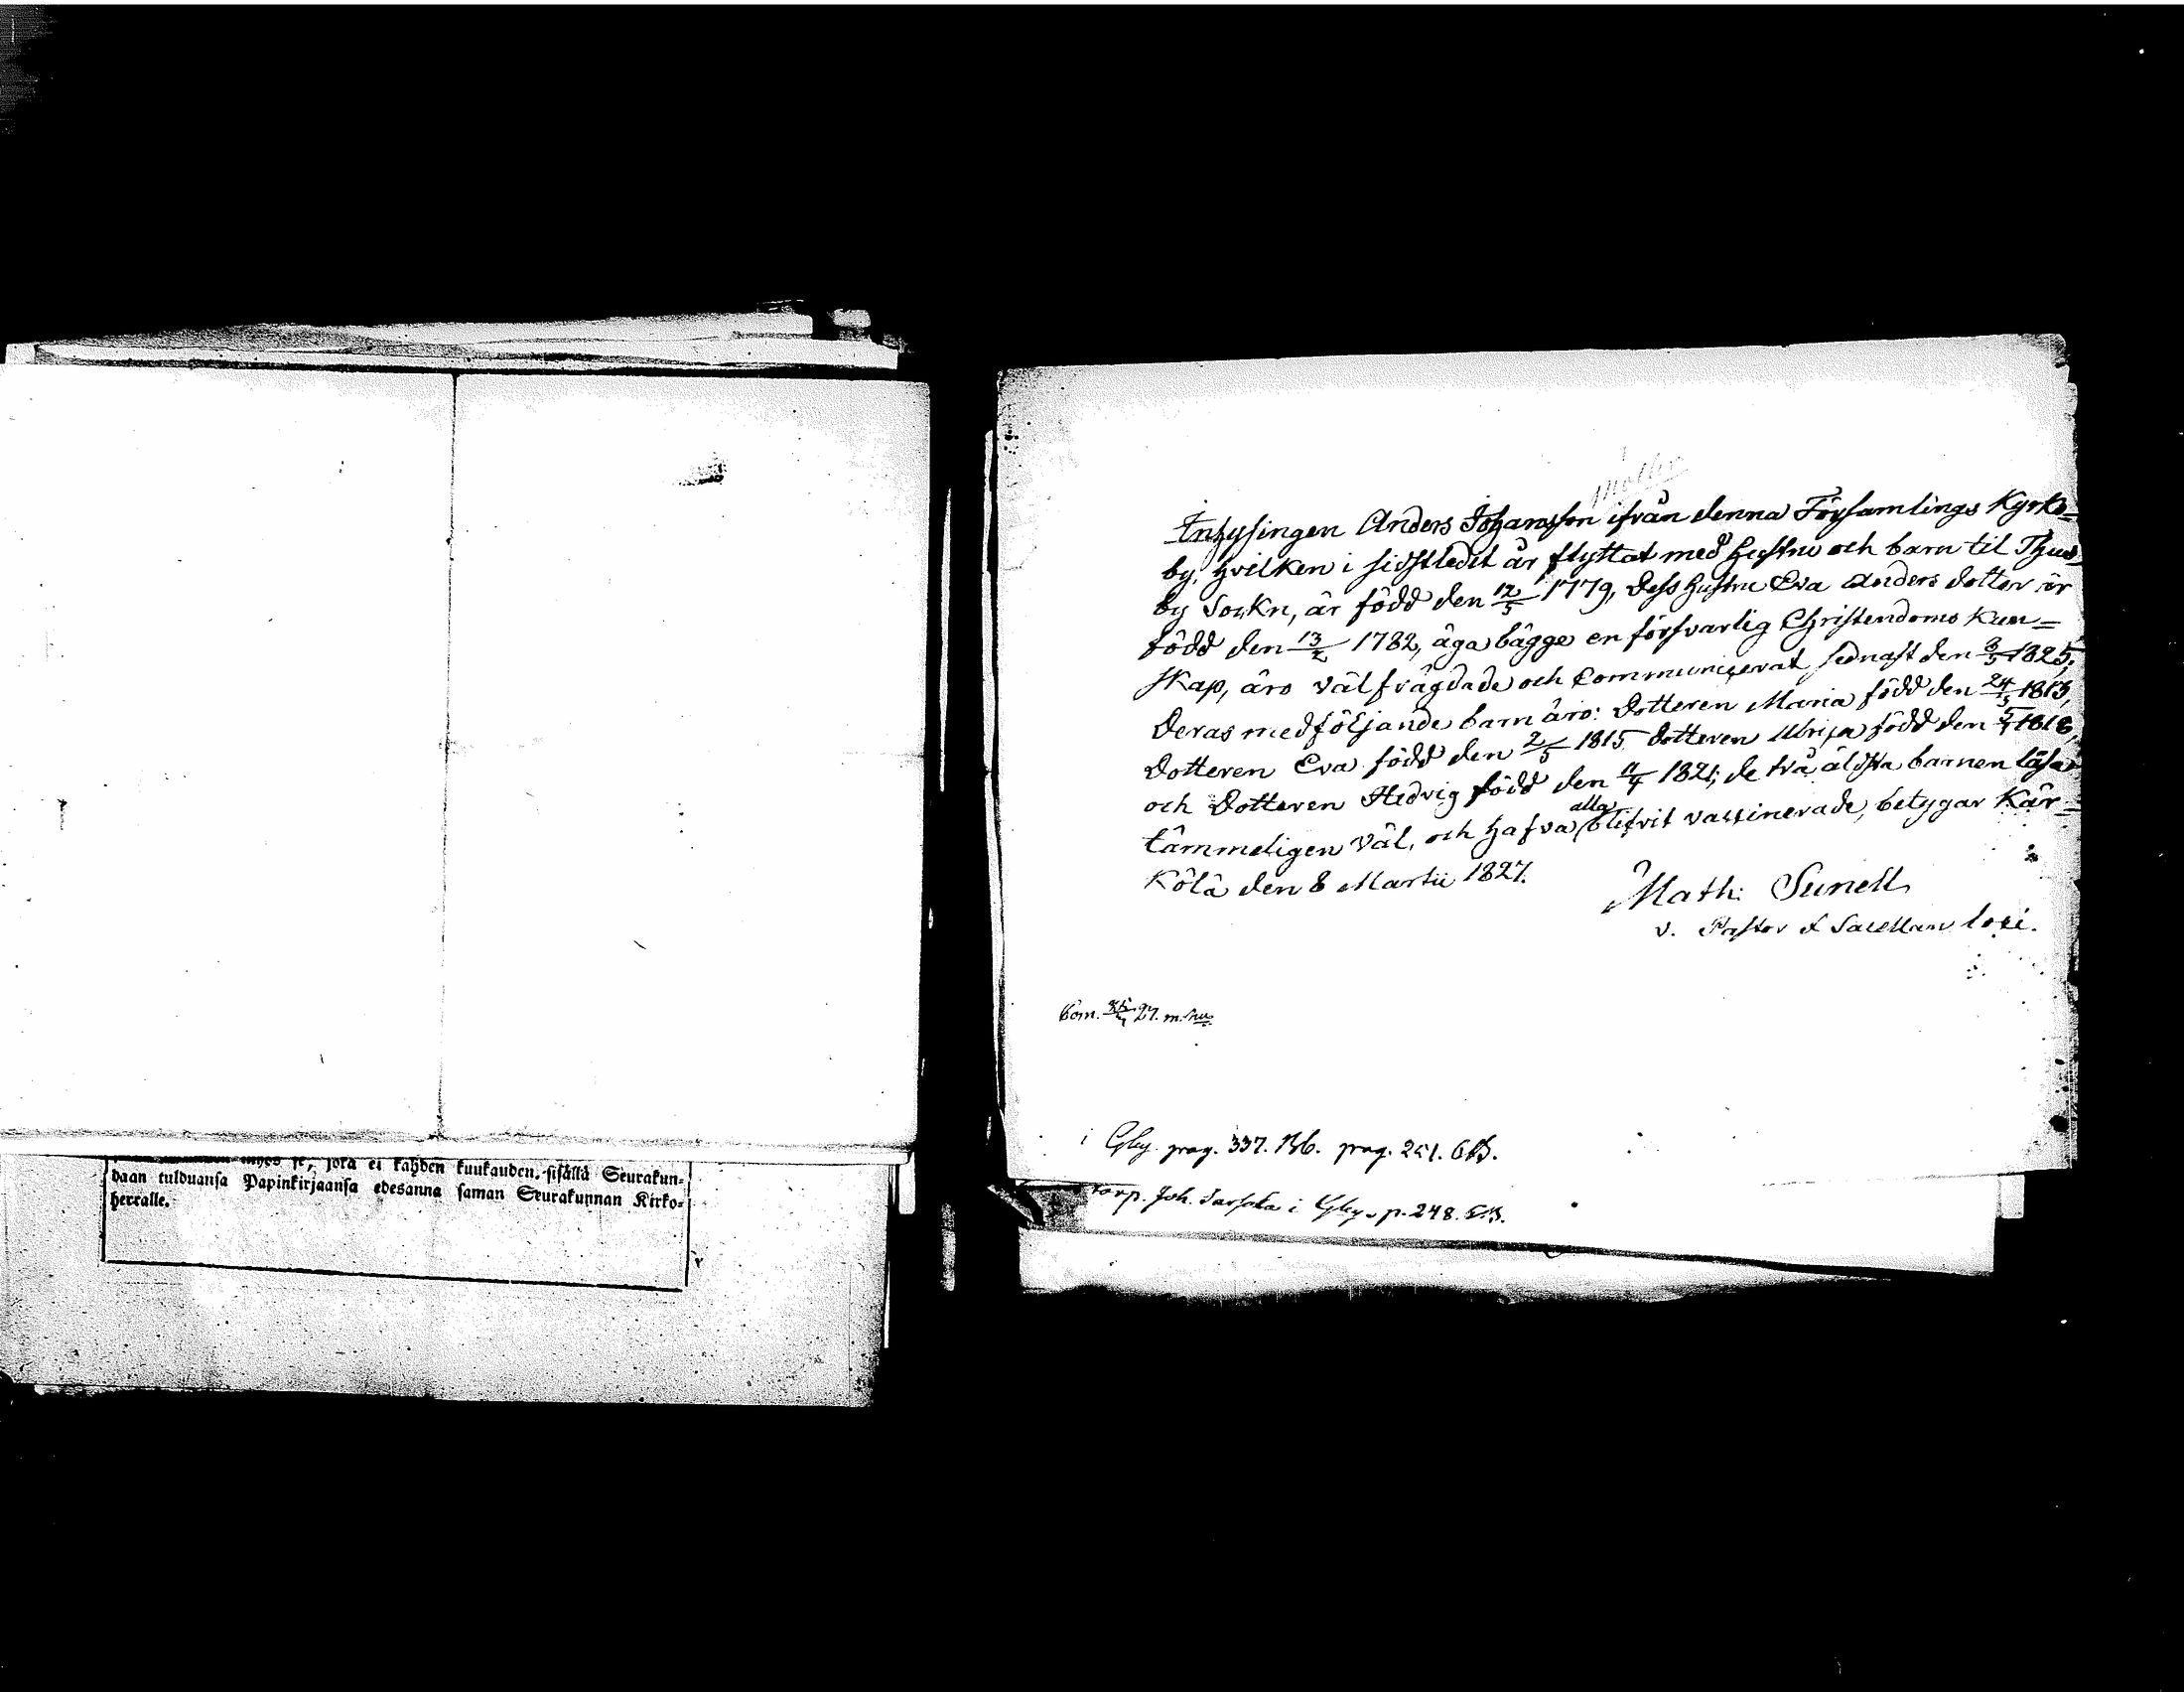 daan tulduansa Papinkirjaansa edesanna saman Seurakunnan Kirko-
herralle.
Inhysingen Anders Johansson ifrån denna Församlings Kyrko=
by, hvilken i sidstledit år flyttat med hustru och barn til Thus
by Sockn, är född den 12/5 1779, dess hustru Eva Anders dotter är
född den 13/2 1782, äga bägge en försvarlig Christendoms Kun=
skap, äro välfrägdade och Communicerat sednast den 8/5 1825;
Deras medföljande barn äro: Dotteren Maria född den 24/3 1813,
Dotteren Eva född den 2/5 1815 dotteren Ulrica född den 5/7 1818,
och Dotteren Hedvig född den 11/4 1821; de två äldsta barnen läsa
tämmeligen väl, och hafva alla blifvit vaccinerade, betygar Kär=
kölä den 8 Martii 1827.
Math: Sunell
v. Pastor & Sacellan loci.
27. m. hu
i Gby pag. 337. pag. 251.
torp. Joh. i Gby p. 248.